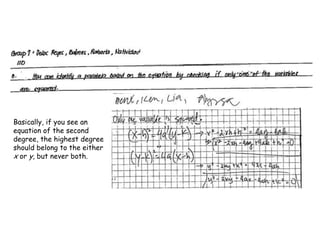 Group 7 - Delos Reyes, Bulanes, Ramento, Natividad
110
8. You can identify a parabola based on the equation by checking if only one of the variables
are squared.
Ken, Lia,
Basically, if you see an
equation of the second
degree, the highest degree
should belong to the either
x or y, but never both.
Only one variable is squared.
(x-h)² = 4a(y-k) → x² - 2xh + h² = 4ay - 4ak
(x² - 2xh - 4ay + 4ak + h² = 0)
(y-k)² = 4a(x-h)